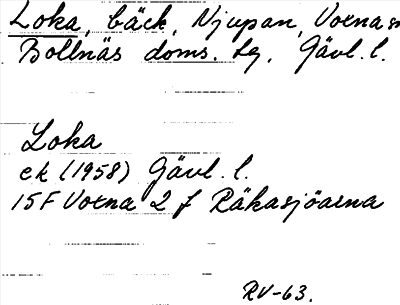 Loka, bäck, Njupan, Voxnas
Bollnäs doms. tg. Gävl. l.
Loka
ek (1958) Gävl. l.
15F Voxna 2 f Råkasjöarna
RV-63.